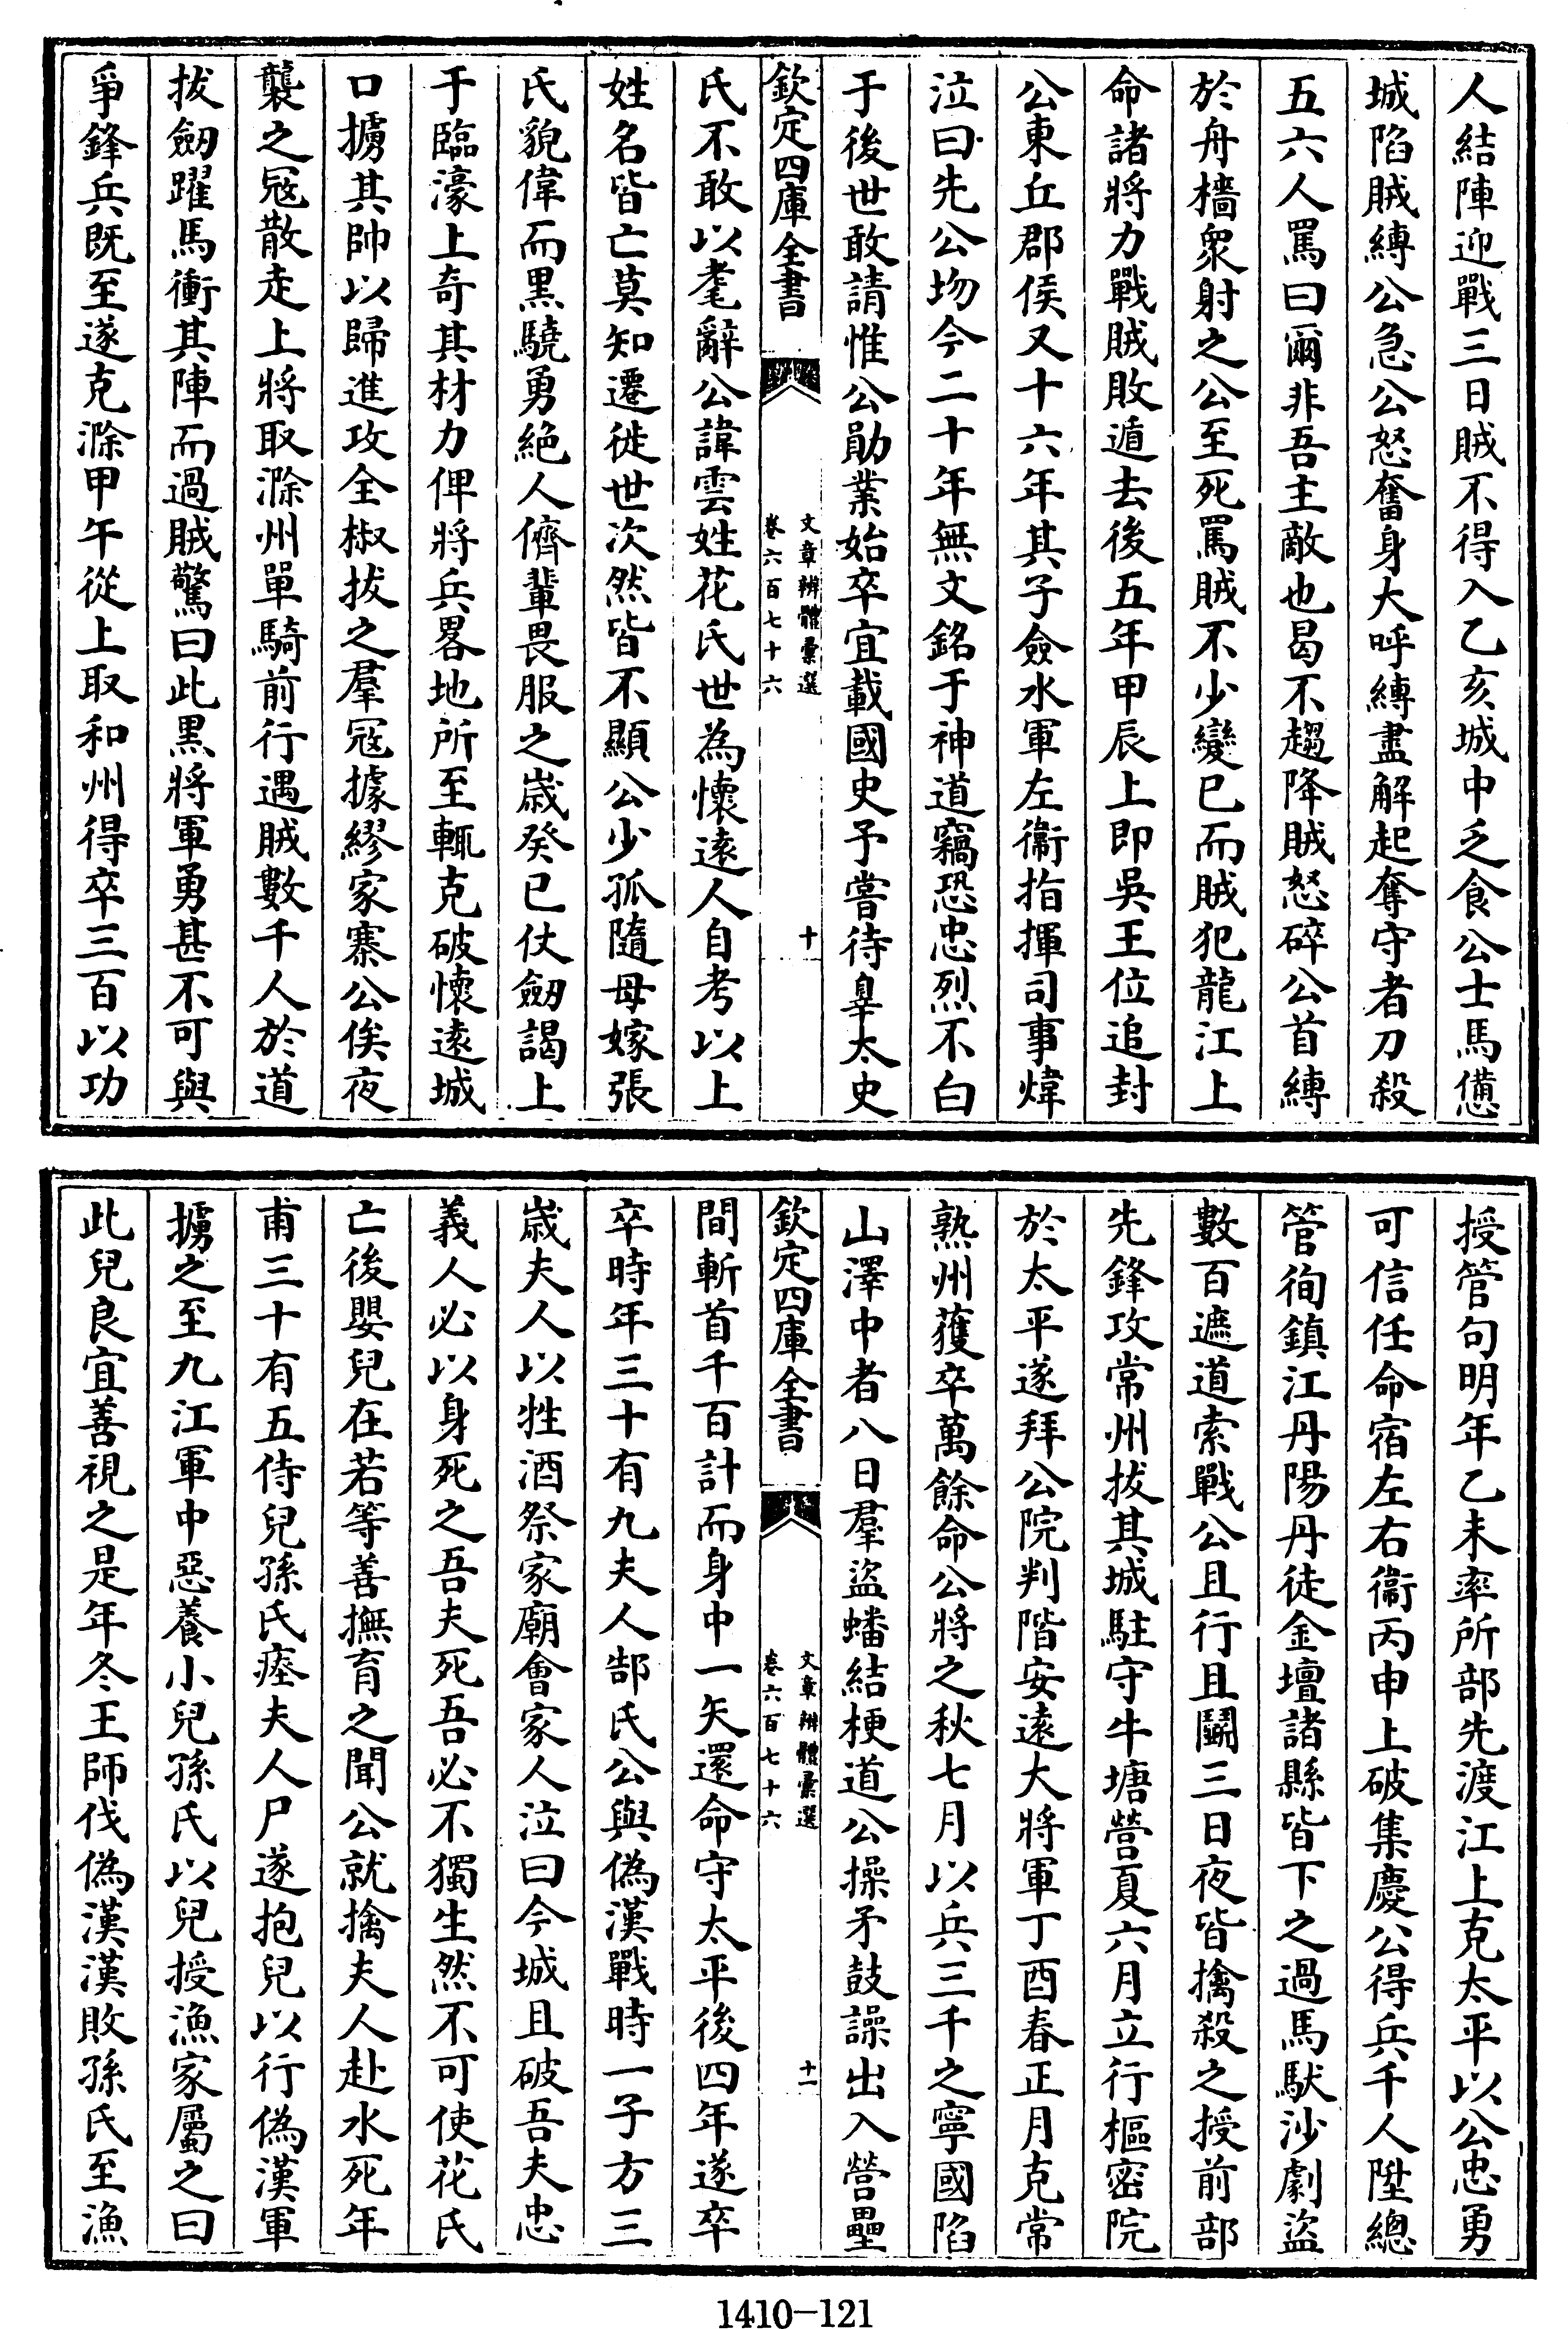 人結陣迎戰三日賊不得入乙亥城中乏食公士馬憊
城陷賊縛公急公怒奮身大呼縛盡解起奪守者刀殺
五六人罵曰爾非吾主敵也曷不趨降賊怒碎公首縛
於舟檣衆射之公至死罵賊不少變已而賊犯龍江上
命諸將力戰賊敗遁去後五年甲辰上即吳王位追封
公東丘郡侯又十六年其子僉水軍左衞指揮司事煒
泣曰先公歾今二十年無文銘于神道竊恐忠烈不白
于後世敢請惟公勛業始卒宜載國史予嘗待辠太史
欽定四庫全書
文章辨體彙選
卷六百七十六
十
氏不敢以耄辭公諱雲姓花氏世為懷遠人自考以上
姓名皆亡莫知遷徙世次然皆不顯公少孤隨母嫁張
氏貌偉而黒驍勇絶人儕輩畏服之歲癸已仗劒謁上
于臨濠上奇其材力俾將兵畧地所至輒克破懷遠城
口擄其帥以歸進攻全椒拔之羣冦據繆家寨公俟夜
襲之冦散走上將取滁州單騎前行遇賊數千人於道
拔劒躍馬衝其陣而過賊驚曰此黒將軍勇甚不可與
爭鋒兵既至遂克滁甲午從上取和州得卒三百以功
授管句明年乙未率所部先渡江上克太平以公忠勇
可信任命宿左右衞丙申上破集慶公得兵千人陞總
管徇鎮江丹陽丹徒金壇諸縣皆下之過馬馱沙劇盜
數百遮道索戰公且行且鬭三日夜皆擒殺之授前部
先鋒攻常州拔其城駐守牛塘營夏六月立行樞密院
於太平遂拜公院判階安遠大將軍丁酉春正月克常
熟州獲卒萬餘命公將之秋七月以兵三千之寧國陷
山澤中者八日羣盜蟠結梗道公操矛鼓譟出入營壘
欽定四庫全書
文章辨體彙選
卷六百七十六
十一
間斬首千百計而身中一矢還命守太平後四年遂卒
卒時年三十有九夫人郜氏公與偽漢戰時一子方三
歲夫人以牲酒祭家廟會家人泣曰今城且破吾夫忠
義人必以身死之吾夫死吾必不獨生然不可使花氏
亡後嬰兒在若等善撫育之聞公就擒夫人赴水死年
甫三十有五侍兒孫氏瘞夫人尸遂抱兒以行偽漢軍
擄之至九江軍中惡養小兒孫氏以兒授漁家屬之曰
此兒良宜善視之是年冬王師伐偽漢漢敗孫氏至漁
1410-121